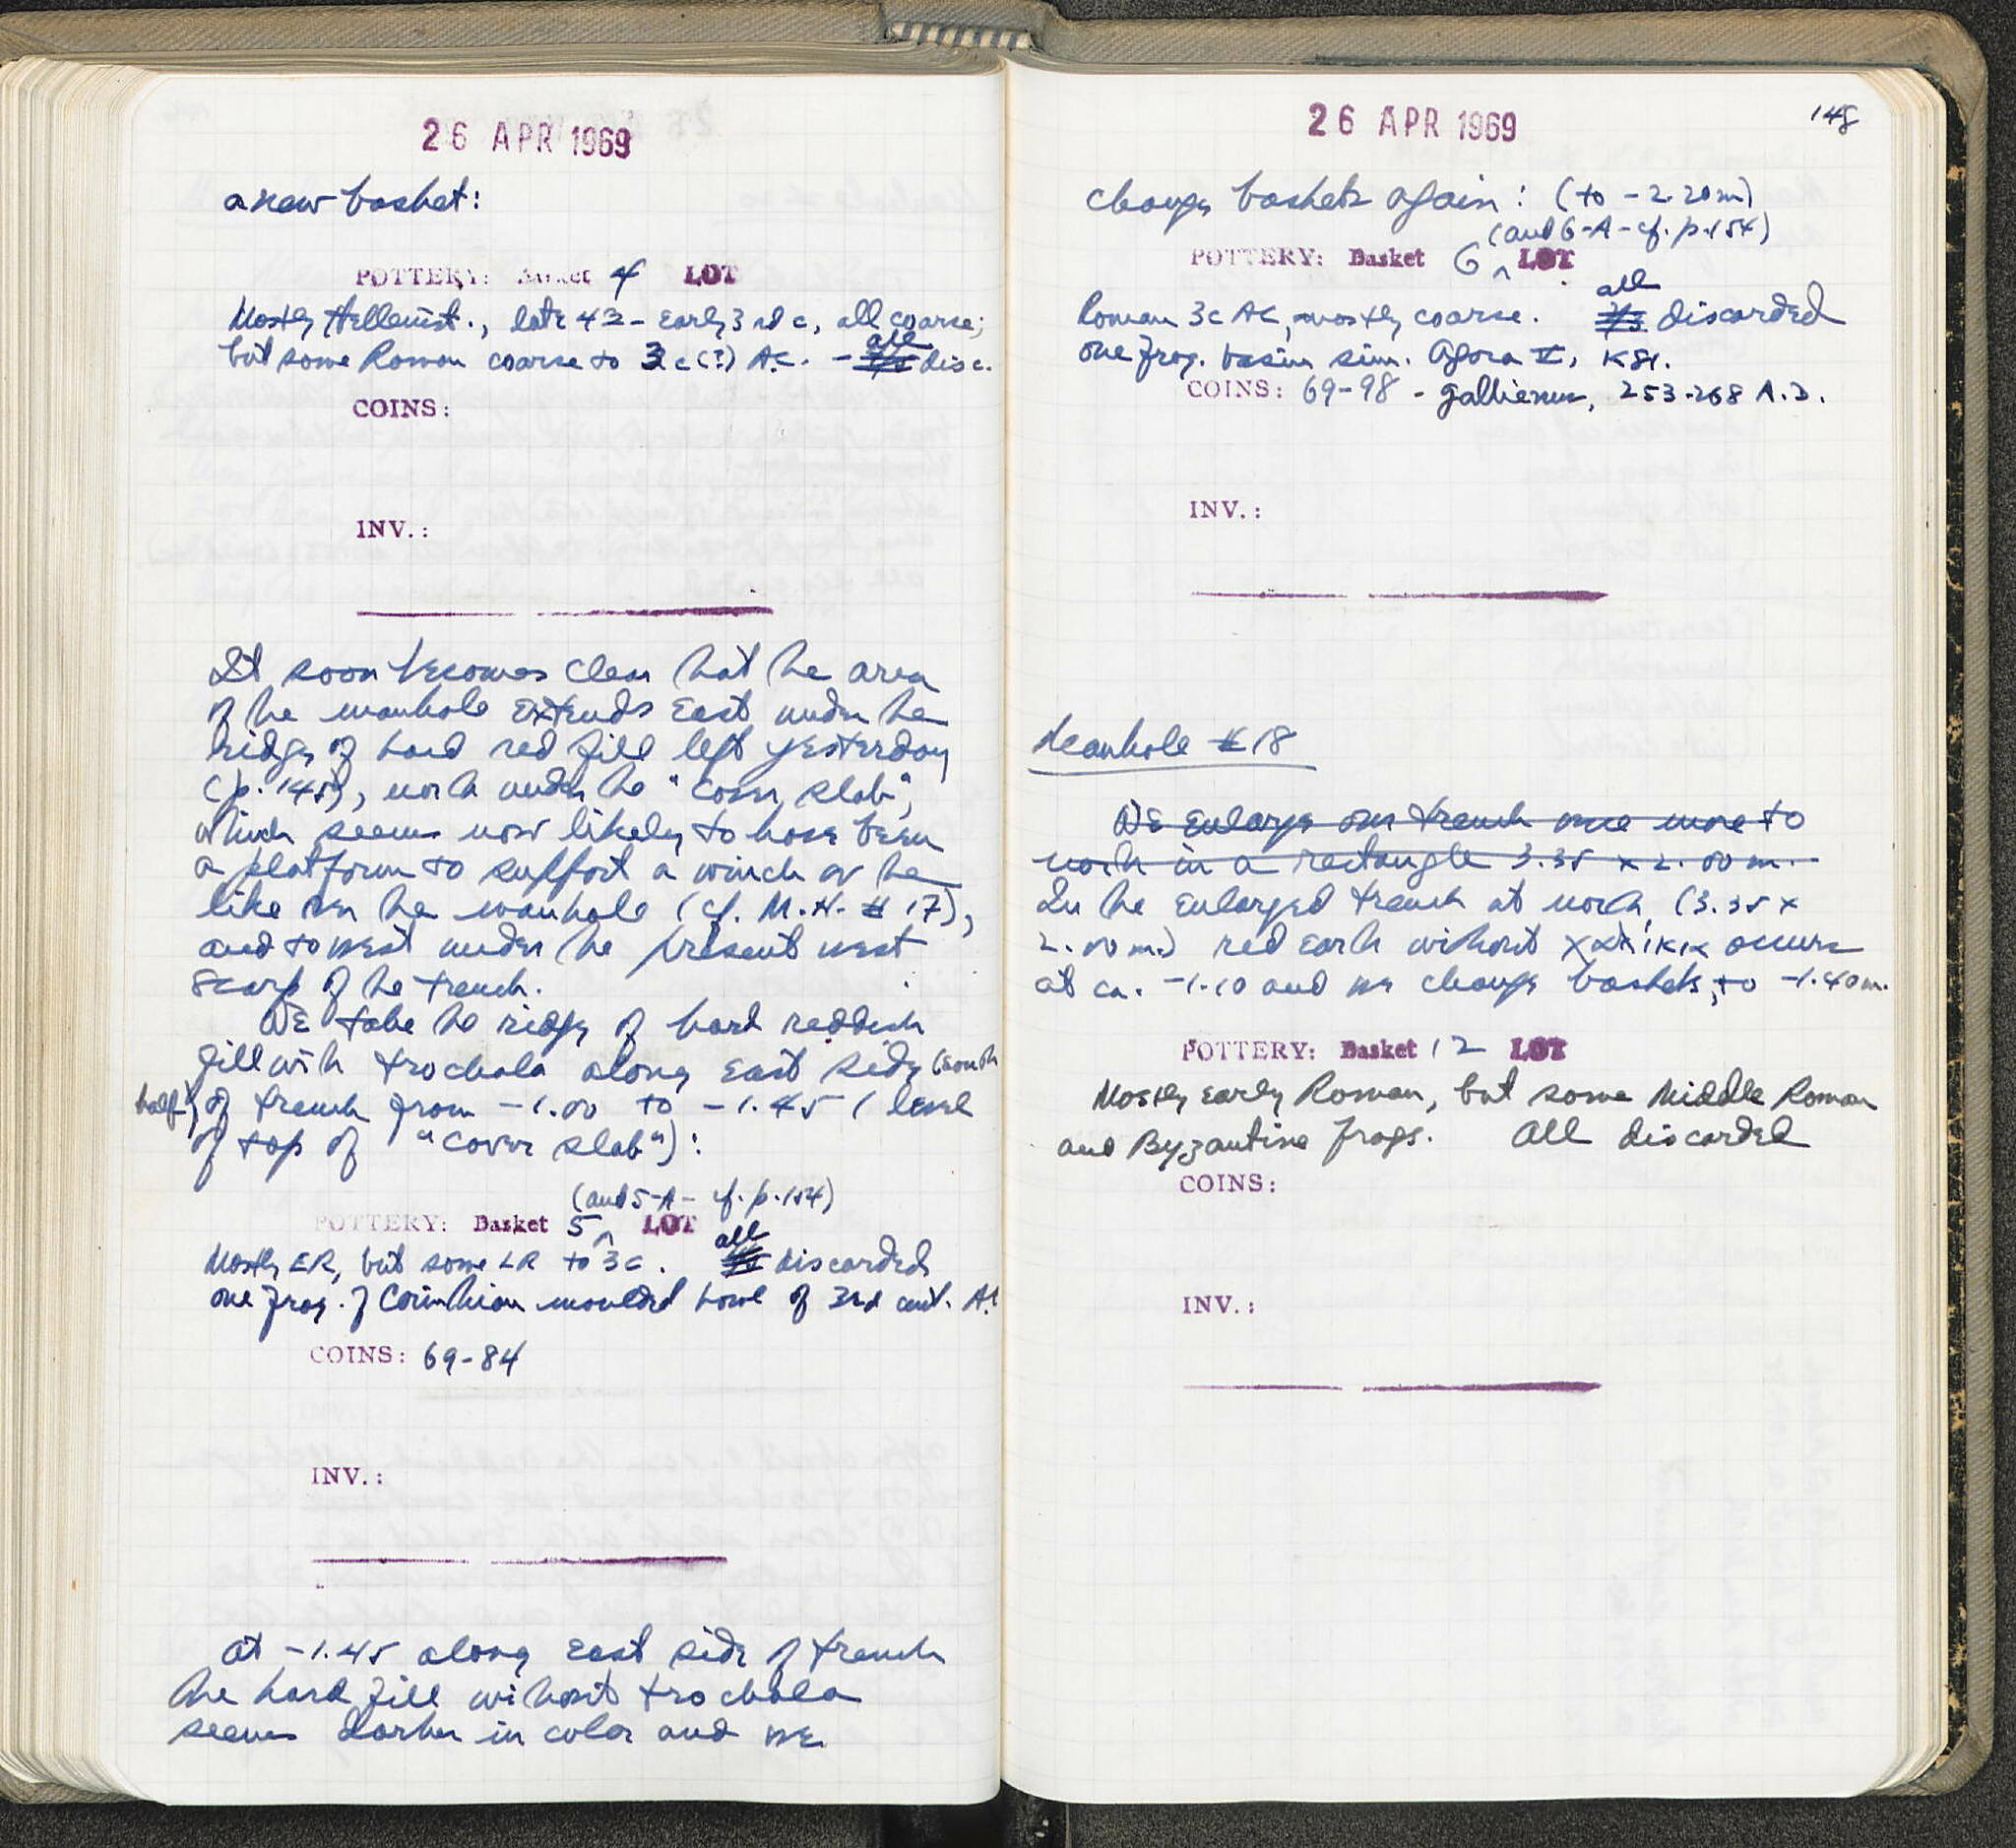 26 APR 1969
a new basket:
POTTERY: Basket 4 LOT
Mostly Hellenist., late 4 - early 3rd c, all coarse;
but some Roman coarse to 3c(?) A.C. - all disc.
COINS:
INV.:
It soon becomes clear that the area
of the manhole extends East under the
ridge of hard red fill left yesterday
(p. 145), north under the "cover slab",
which seems now likely to have been
a platform to support a winch or the
like over the manhole (cf. M.H. # 17),
and to west under the present west
scarp of the trench.
We take the ridge of hard reddish
fill with trochala along East side (south
half) of trench from -1.00 to -1.45 (level
of top of "cover slab"):
(and 5-A - cf. p. 154)
POTTERY: Basket 5 ^ LOT
Mostly ER, but some LR to 3c. all discarded
one frag. of Corinthian moulded bowl of 3rd cent. A.C
COINS: 69-84
INV.:
at -1.45 along East side of trench
the hard fill without trochala
seems darker in color and we
26 APR 1969
148
change baskets again: (to -2.20m)
(and 6-A - cf. p. 154)
POTTERY: Basket 6 ^ LOT
Roman 3c AC, mostly coarse. all discarded
one frag. basin sim. Agora V, K81.
COINS: 69-98 - Gallienus, 253-268 A.D.
INV.:
Manhole #18
We enlarge our trench once more to
north in a rectangle 3.35 x 2.00 m.
In the enlarged trench at north, (3.35 x
2.00 m.) red earth without χαλίκια occurs
at ca. -1.10 and we change baskets, to -1.40m.
POTTERY: Basket 12 LOT
Mostly early Roman, but some Middle Roman
and Byzantine frags. All discarded
COINS:
INV.: